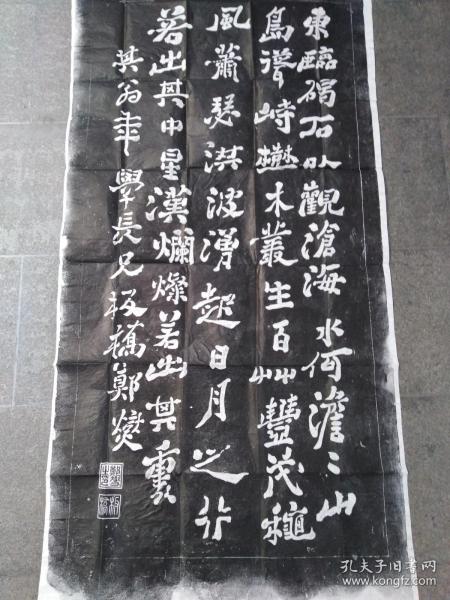 東臨碣石以觀滄海水何澹〻山
島峙樹木叢生百艸豐茂穐
風蕭瑟洪波湧起日月之行
若出其中星漢爛燦若出其裏
其翁年學長兄板橋鄭燮
孔夫子旧书网
www.kongfz.com